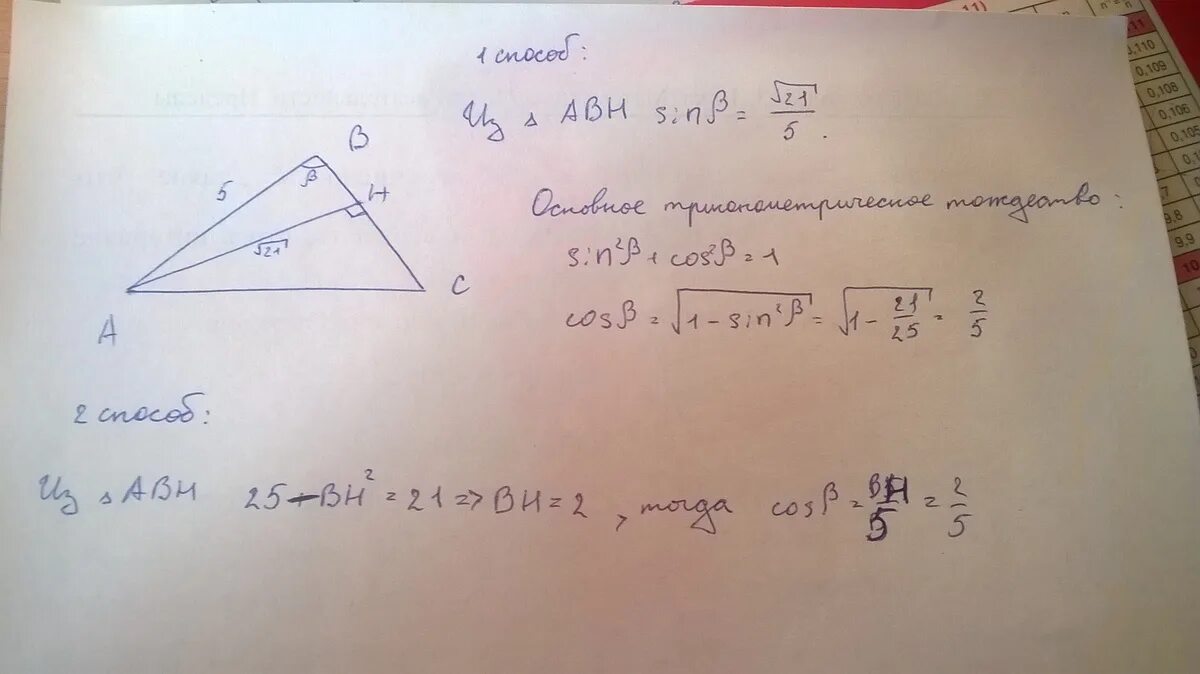 1 способ:
Из △ ABH sinβ = √21/5.
B
β
5
H
√21
A
C
Основное тригонометрическое тождество:
sin²β + cos²β = 1
cosβ = √(1 - sin²β) = √(1 - 21/25) = 2/5
2 способ:
Из △ ABH 25 - BH² = 21 => BH = 2, тогда cosβ = BH/5 = 2/5
11)
11
0,110
0,109
0,108
0,106
0,105
9,8
9,9
10